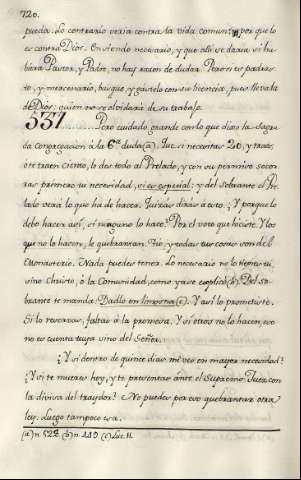 120.
pueda. Lo contrario seria contra la vida comun: por que lo
es contra Dios. En siendo necesario, y que alli se daria si hu
biera Pastor, y Padre, no hay razon de dudar. Pero si es padras
to, y mercenario, busque, y gastelo con su licencia, pues llevada
de Dios, quien no se olvidaria de su trabajo.
537 Pero cuidado grande con lo que dixo la sagra
da Congregacion à la 6ª duda (a). Que si necesitas 20, y traxe
ò te traen ciento, lo des todo al Prelado, y con su permiso socor
ras primero tu necesidad, si es especial: y del sobrante el Pre
lado verà lo que ha de hacer. Quizàs diràs à esto: ¿Y porque lo
debo hacer asi, si ninguno lo hace? Por el voto que hiciste. Y los
que no lo hacen, le quebrantan. Tu, y todas tus cosas son del
Monasterio. Nada puedes tener. Lo necesario no lo tienes tu,
sino Christo, ò la Comunidad, como ya se explicò (b). Del so
brante te manda: Dadlo en limosna (c). Y asi lo prometiste.
Si lo reservas, faltas à la promesa. Y si otros no lo hacen, eso
no es cuenta tuya sino del Señor.
¿Y si dentro de quince dias me veo en mayor necesidad?
¿Y si te mueres hoy, y te presentas ante el Supremo Juez con
la divisa del traydor? No puedes por eso quebrantar otra
ley. Luego tampoco esa.
(a) n. 528. (b) n. 449. (c) Luc. 11.